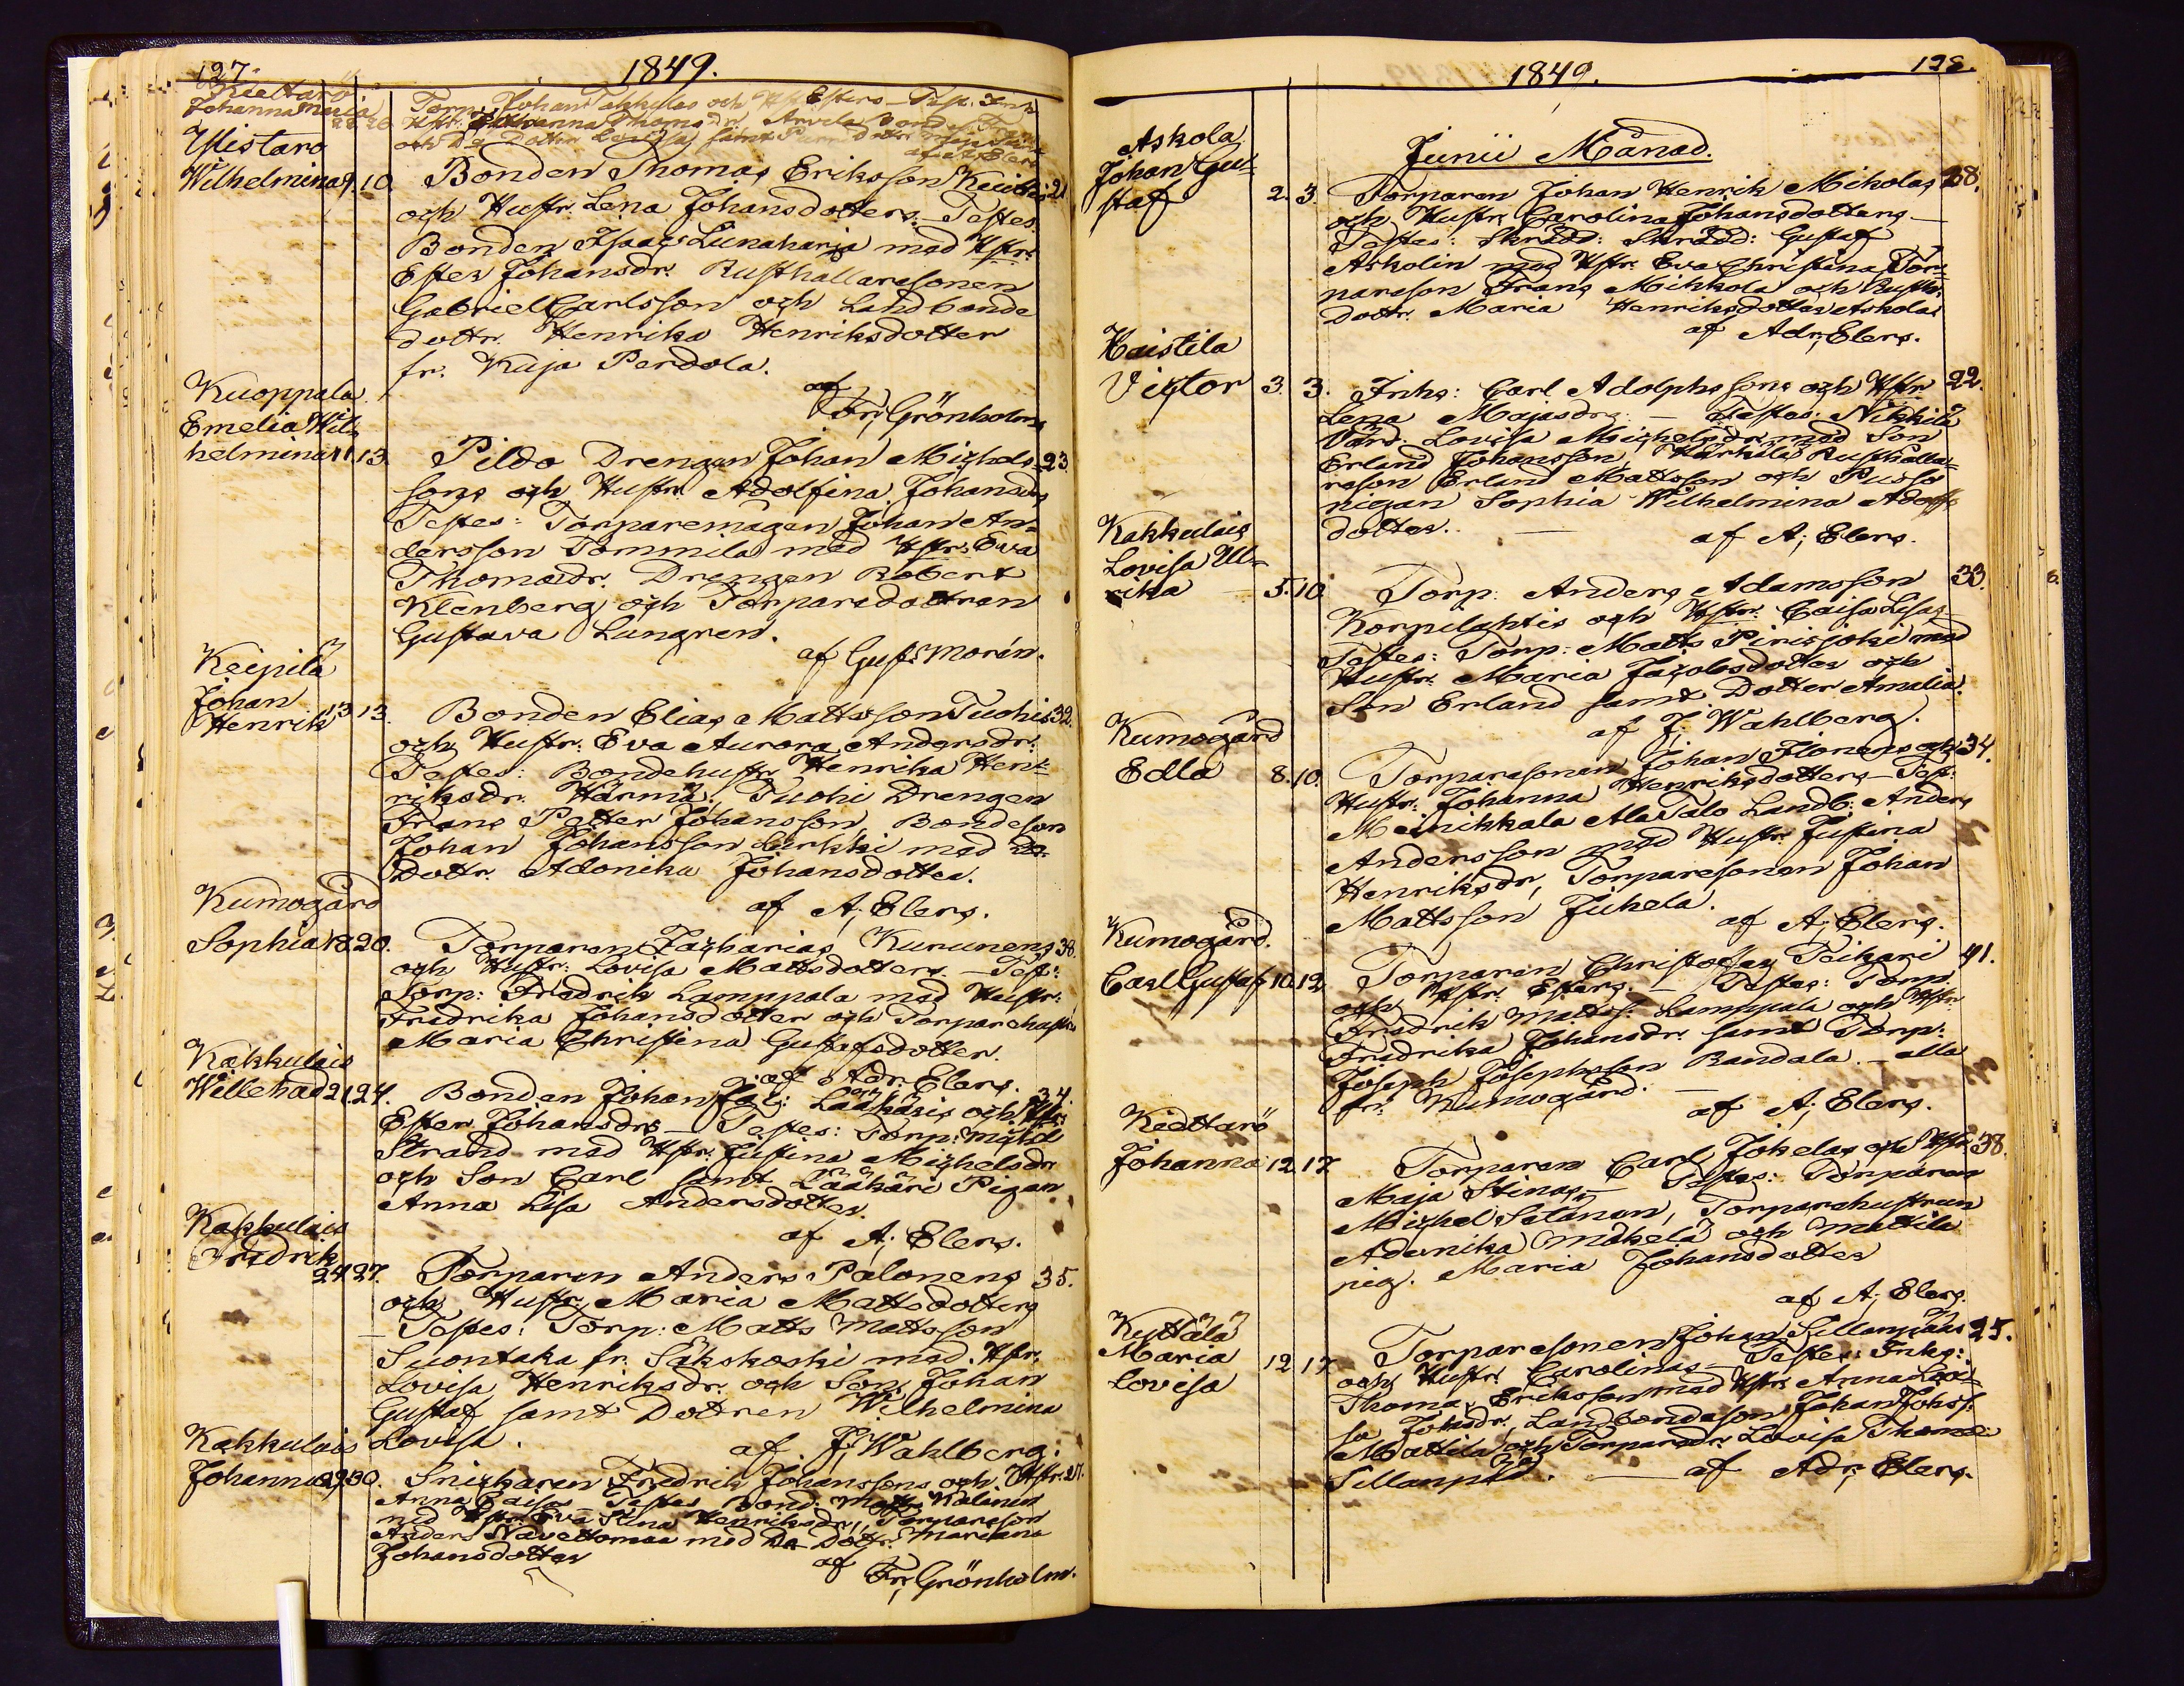 127.
1849.
Kiettarö
Johanna Maria
28. 28.
Torp: Johan Takkulas och H Esters – Test. 
Hstr. Johanna Thomsdr. Arvela Bondes. Frans
och Dr Dotter Lovisa samt
af A; Elers
Yllistaro
Wilhelmina 9. 10.
Bonden Thomas Eriksson 21.
och Hustr. Lena Johansdotters. – Testes.
Bonden Isaac Liinaharja med Hstr.
Ester Johansdr. Rusthållaresonen
Gabriel Carlsson och Landbonde
dottr. Henrika Henriksdotter
fr. Kuja Perdola.
af
Fr; Grönholm
Kuoppala
Emelia Wil-
helmina 11. 13.
Pildo Drengen Johan Michels- 23.
sons och Hustr. Adolfina Johansdrs
Testes: Torparemågen Johan An-
dersson Tommila med Hstr. Eva
Thomasdr. Drengen Robert
Klenberg och Torparedottren
Gustava Lungren.
af Gust. Morén.
Keipilä
Johan
Henrik 13 13.
Bonden Elias Mattsson Tuohis 32.
och Hustr. Eva Aurora Andersdr.
Testes: Bondehustr. Henrika Hen-
riksdr. Härmä. Tuohi Drengen
Frans Petter Johansson, Bondeson
Johan Johansson Lerkki med Do-
Dottr. Adonika Johansdotter.
af A; Elers.
Kumogård
Sophia 18 20.
Torparen Zacharias Kurunens 38.
och Hustr. Lovisa Mattsdotters – Test:
Torp: Fredrik Lamppala med Hustr:
Fredrika Johansdotter och Torparehustru
Maria Christina Gustafsdotter.
af Adr. Elers.
Kakkulais
Willehad 21. 24.
Bonden Johan Jac: Lääkäris och Hstr. 34.
Ester Johansdrs – Testes: Torp: Michel
Strand med Hstr. Justina Michelsdr
och Son Carl samt Lääkäri Pigan
Anna Lisa Andersdotter.
af A; Elers.
Kakkulais
Fredrik
24 27.
Torparen Anders Palonens 35.
och Hustr. Maria Mattsdotters
– Testes: Torp: Matts Mattsson
Suontaka fr. Säkskoski med Hstr.
Lovisa Henriksdr. och Son Johan
Gustaf samt Dottren Wilhelmina
Lovisa.
af J; Wahlberg.
Kakkulais
Johanna 29 30.
Snickaren Fredrik Johanssons och Hstr. 27.
Anna Caisas – Testes Bond: Matts Kalonen
med Hstr. Eva Stina Henriksdr, Torpareson
Anders Navettomaa med Do Dottr. Mariana
Johansdotter
af
Fr; Grönholm.
1849.
128.
Junii Månad.
Askola
Johan Gu-
staf 2. 3.
Torparen Johan Henrik Mikolas 28.
och Hustr. Carolina Johansdotters –
Testes: Skrädd: Skrädd: Gustaf
Askolin med Hstr. Eva Christina Tor-
pareson Frans Mikkola och Rusth.
Dottr. Maria Henriksdotter Askola
af Adr; Elers.
Kaistila
Victor 3. 3.
Inhs: Carl Adolphssons och Hstr 22.
Lena Majasdrs. – Testes: Nikkilä
Värd: Lovisa Michelsdr med Son
Erland Johansson, Härkälä Rusthålla-
reson Erland Mattsson och Pusso
pigan Sophia Wilhelmina Adolfs
dotter.
af A; Elers.
Kakkulais
Lovisa Ul-
rika – 5. 10.
Torp: Anders Adamsson 33.
Korpilahtis och Hstr. Caisa Lisas –
Testes: Torp: Matts Pirisjoki med
Hustr. Maria Jacobsdotter och
Son Erland samt Dotter Amalia.
af J; Wahlberg.
Kumogård
Edla 8. 10.
Torparesonen Johan Flomens och 34.
Hustr. Johanna Henriksdotters – Test:
Meinikkala Ala Talo Landb: Anders
Andersson med Hustr. Justina
Henriksdr, Torparesonen Johan
Mattsson Juhela.
af A; Elers.
Kumogård.
Carl Gustaf 10. 12.
Torparen Christofer Teikari 41.
och Hstr. Esters. – Testes: Torp:
Fredrik Mattss: Lamppala och Hstr.
Fredrika Johansdr. samt Torp:
Joseph Josephsson Randala. – alla
fr: Kumogård. –
af A; Elers.
Kiettarö
Johanna 12. 17.
Torparen Carl Jokelas och Hstr. 38.
Maja Stinas – Testes: Torparen
Michel Salanen, Torparehustrun
Adamika Mäkelä och Mattila
pig. Maria Johansdotter
af A; Elers.
Kyttälä
Maria
Lovisa 12 17
Torparesonen Johan Sillanpääs 25.
och Hustr. Carolinas – Testes: Inhs:
Thomas Eriksson med Hstr. Anna Loi-
sa Johsdr. Landbondeson Johan Johss:
Mattila och Torparedr. Lovisa Thomas:
Sillanpää. – af Adr; Elers.